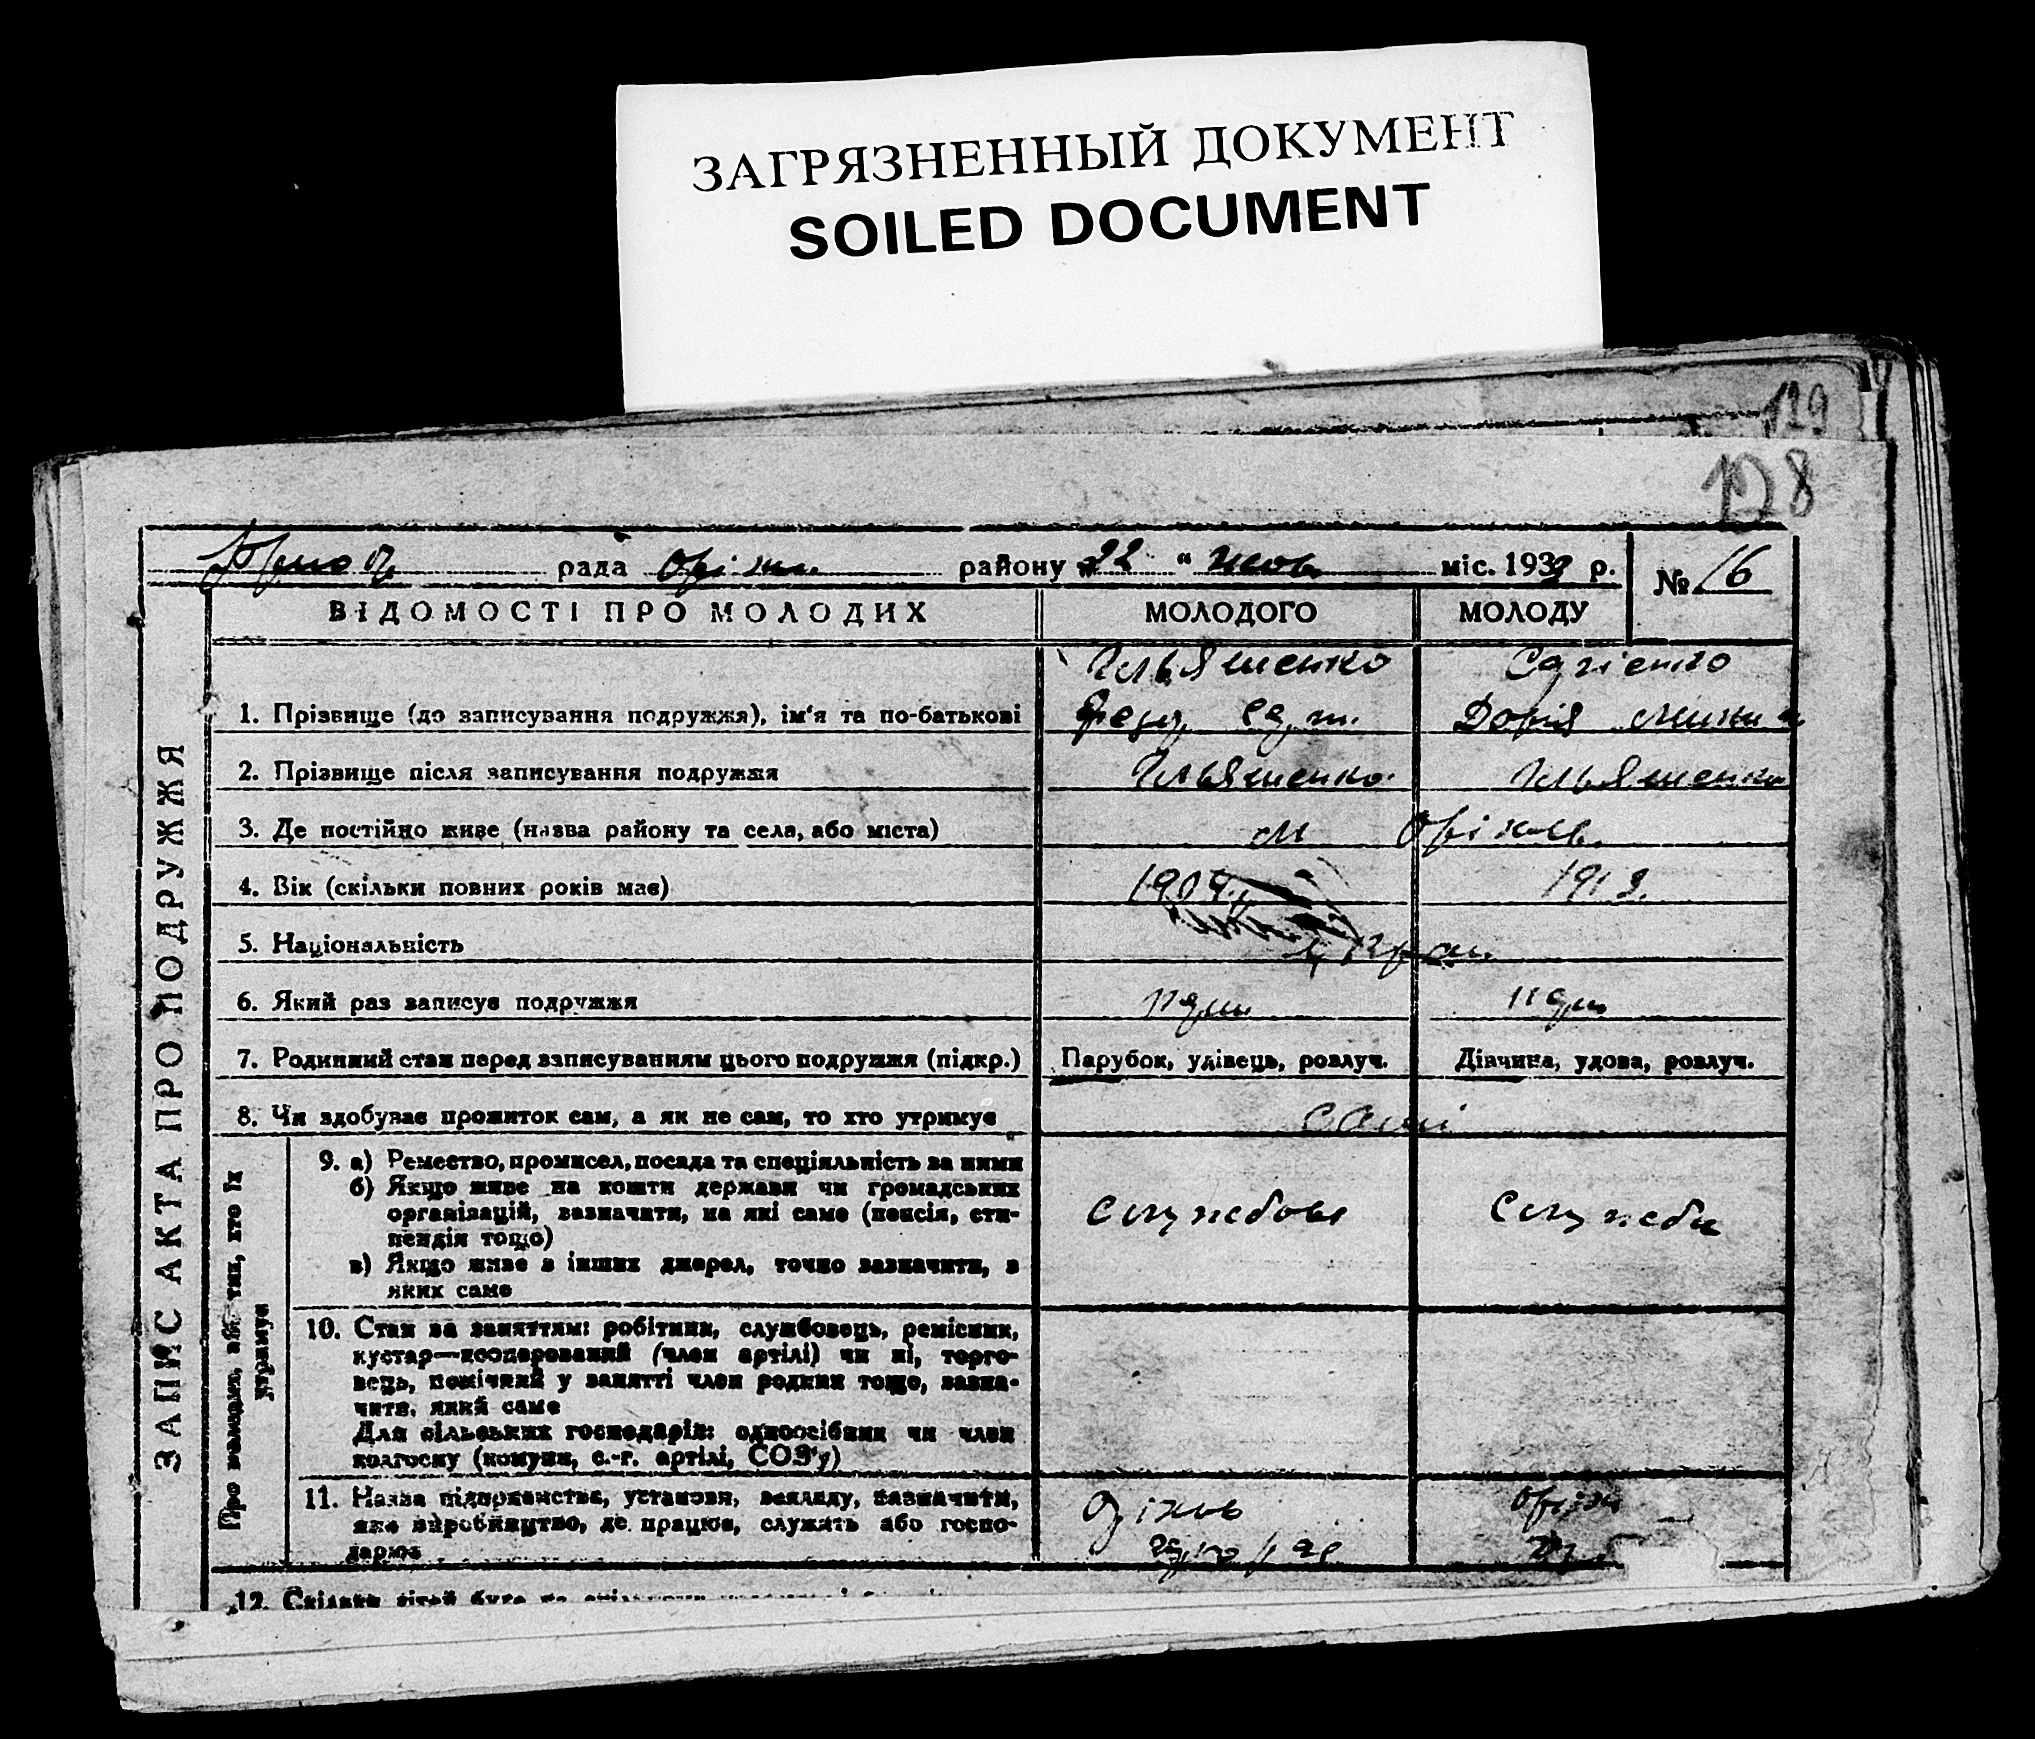 ЗАГРЯЗНЕННЫЙ ДОКУМЕНТ
SOILED DOCUMENT
129
128
рада Оріхи. району 22 " Жовт міс. 1939 р. № 16
ВІДОМОСТІ ПРО МОЛОДИХ МОЛОДОГО МОЛОДУ
ЗАПИС АКТА ПРО ПОДРУЖЖЯ
Ильяшенко
1. Прізвище (до записування подружжя), ім'я та по-батькові Дорія
2. Прізвище після записування подружжя Ильяшенко Ильяшенко
3. Де постійно живе (назва району та села, або міста) м Оріхів.
4. Вік (скільки повних років має) 1909 1913.
5. Національність Укра.
6. Який раз записує подружжя
7. Родинний стан перед записуванням цього подружжя (підкр.) Парубок, удівець, розлуч. Дівчина, удова, розлуч.
8. Чи здобуває прожиток сам, а як не сам, то хто утримує самі
Про молодих, або тих, хто їх утримує
9. а) Ремество, промисел, посада та спеціяльність за ними
б) Якщо живе на кошти держави чи громадських
організацій, зазначити, на які саме (пенсія, сти-
пендія тощо)
в) Якщо живе з інших джерел, точно зазначити, з
яких саме
службовь службо
10. Стан за заняттям: робітник, службовець, ремісник,
кустар—кооперований (член артілі) чи ні, торго-
вець, помічний у занятті член родини тощо, зазна-
чити, який саме
Для сільських господарів: одноосібник чи член
колгоспу (комуни, с.-г. артілі, СОЗ'у)
11. Назва підприємства, установи, закладу, зазначити,
яке виробництво, де працює, служить або госпо-
дарює
12. Скільки дітей було